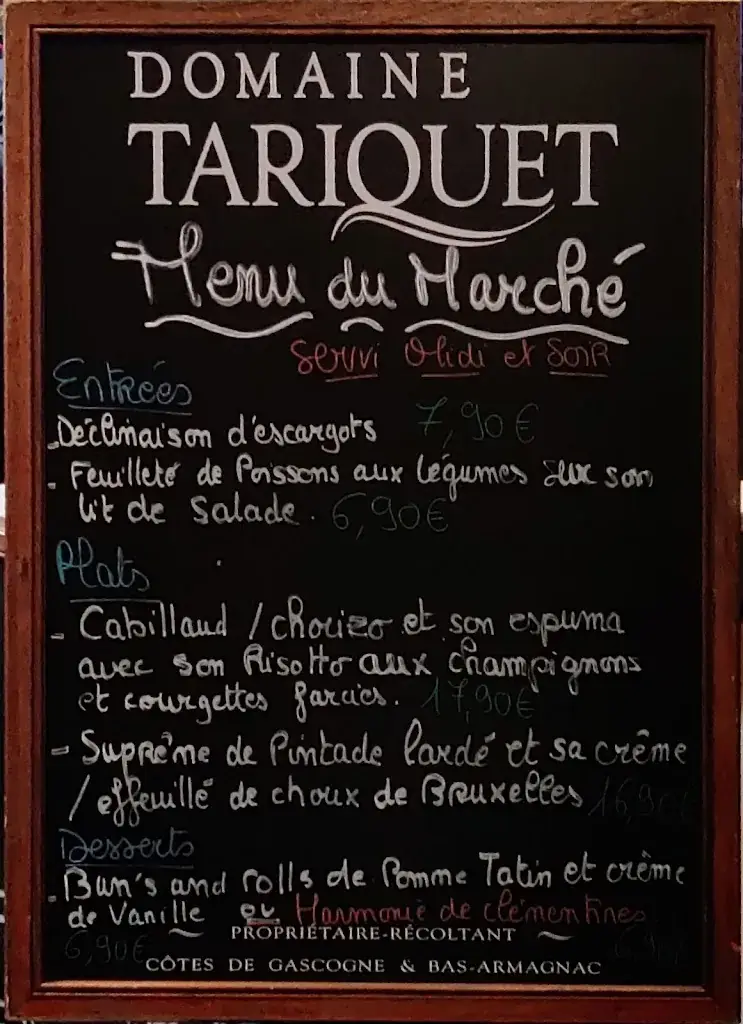 DOMAINE
TARIQUET
Menu du Marché
Servi Midi et Soir
Entrées
- Déclinaison d'escargots 7,90€
- Feuilleté de Poissons aux légumes sur son
lit de Salade. 6,90€
Plats
- Cabillaud / chorizo et son espuma
avec son Risotto aux champignons
et courgettes farcies. 17,90€
- Suprême de Pintade lardé et sa crême
/ effeuillé de choux de Bruxelles 16,90€
Desserts
- Bun's and rolls de Pomme Tatin et crême
de Vanille ou Harmonie de clémentines
PROPRIÉTAIRE-RÉCOLTANT
6,90€ 6,90€
CÔTES DE GASCOGNE & BAS-ARMAGNAC